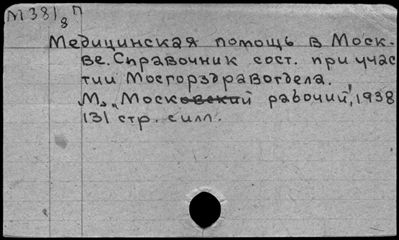 М381 П
8
Медицинская помощь в Моск-
ве. Справочник сост. при учас
тии Мосгорздравотдела.
М., „Московский рабочий", 1938
131 стр. с илл.